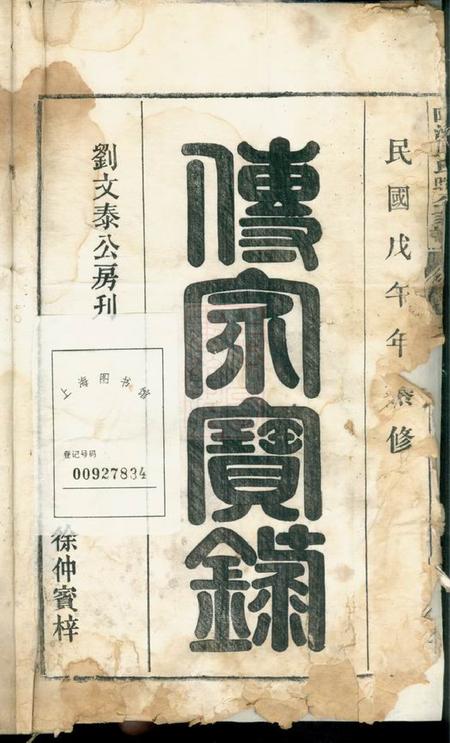 民國戊午年 修
傳家寶錄
劉文泰公房刊
徐仲賓梓
上海图书馆
登记号码
00927834